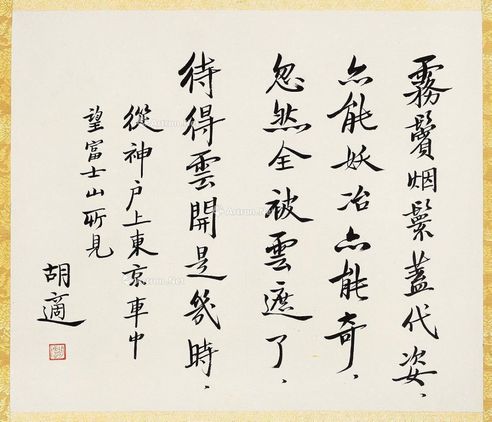 霧鬢烟鬟蓋代姿、
亦能妖冶亦能奇、
忽然全被雲遮了、
待得雲開是幾時、
從神户上東京車中
望富士山所見
胡適
Artron.Net